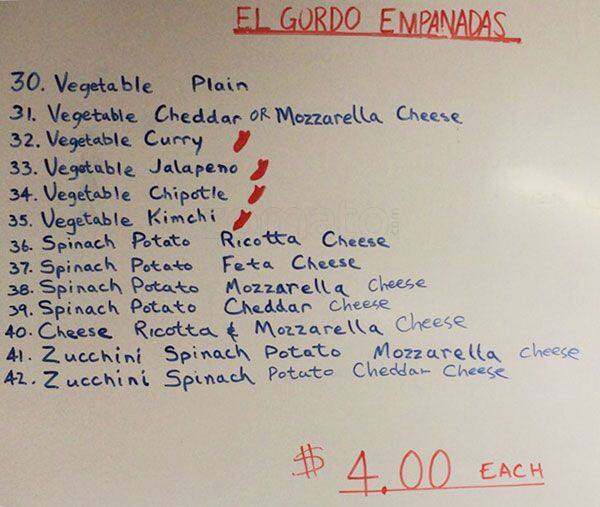 EL GORDO EMPANADAS
30. Vegetable Plain
31. Vegetable Cheddar OR Mozzarella Cheese
32. Vegetable Curry
33. Vegetable Jalapeno
34. Vegetable Chipotle
35. Vegetable Kimchi
36. Spinach Potato Ricotta Cheese
37. Spinach Potato Feta Cheese
38. Spinach Potato Mozzarella Cheese
39. Spinach Potato Cheddar Cheese
40. Cheese Ricotta & Mozzarella Cheese
41. Zucchini Spinach Potato Mozzarella cheese
42. Zucchini Spinach Potato Cheddar Cheese
$ 4.00 EACH